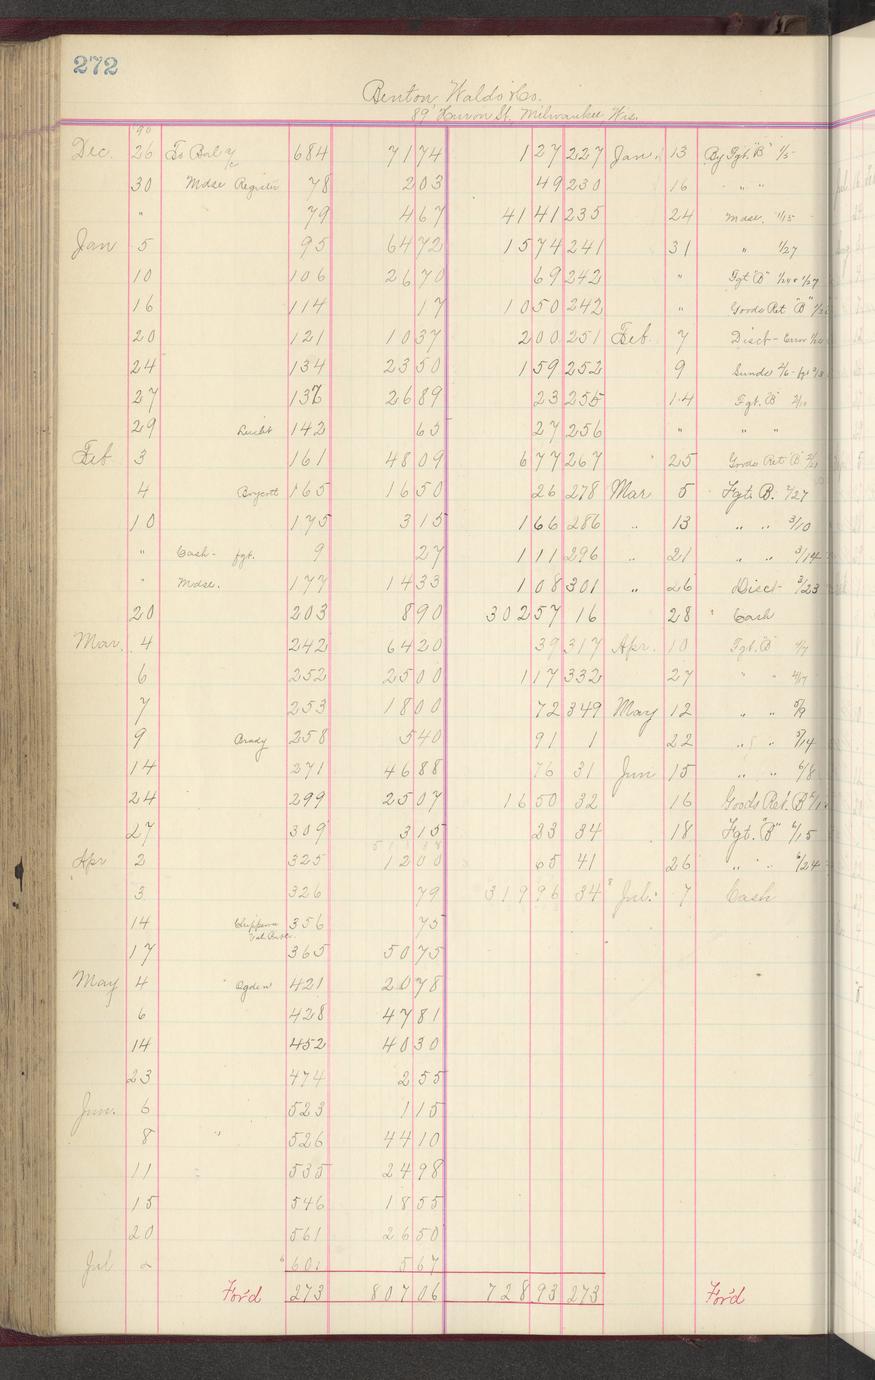 272
Benton Waldo & Co.
89 Huron St. Milwaukee Wis.
'90
Dec. 26 To Bal 684 71 74 1 27 227 Jan 13 By Fgt. "B" 1/5
30 Mdse Register 78 2 03 49 230 16 " "
" 79 4 67 41 41 235 24 Mdse. 1/15
Jan 5 95 64 72 15 74 241 31 " 1/27
10 106 26 70 69 242 " Fgt "B"
16 114 17 10 50 242 " Goods Ret "B"
20 121 10 37 2 00 251 Feb. 7 Disct - Error
24 134 23 50 1 59 252 9
27 137 26 89 23 255 14 Fgt. "B"
29 142 65 27 256 " " "
Feb. 3 161 48 09 6 77 267 25 Goods Ret "B"
4 Boycott 165 16 50 26 278 Mar 5 Fgt. B. 2/27
10 175 3 15 1 66 286 " 13 " " 3/10
" Cash - fgt. 9 27 1 11 296 " 21 " " 3/14
" Mdse. 177 14 33 1 08 301 " 26 Disct - 3/23
20 203 8 90 302 57 16 28 Cash
Mar. 4 242 64 20 39 317 Apr. 10 Fgt. "B" 4/7
6 252 25 00 1 17 332 27 " " 4/17
7 253 18 00 72 349 May 12 " " 5/9
9 Brady 258 5 40 91 1 22 " " 5/14
14 271 46 88 76 31 Jun 15 " " 6/8
24 299 25 07 16 50 32 16 Goods Ret. B
27 309 3 15 23 34 18 Fgt. "B" 6/15
Apr 2 325 12 00 65 41 26 " " 6/24
3 326 79 319 96 34 Jul. 7 Cash
14 Chippewa 356 75
17 365 50 75
May 4 Ogden 421 20 78
6 428 47 81
14 452 40 30
23 474 2 55
Jun. 6 523 1 15
8 " 526 44 10
11 535 24 98
15 546 18 55
20 561 26 50
Jul 2 601 5 67
For'd 273 807 06 728 93 273 For'd